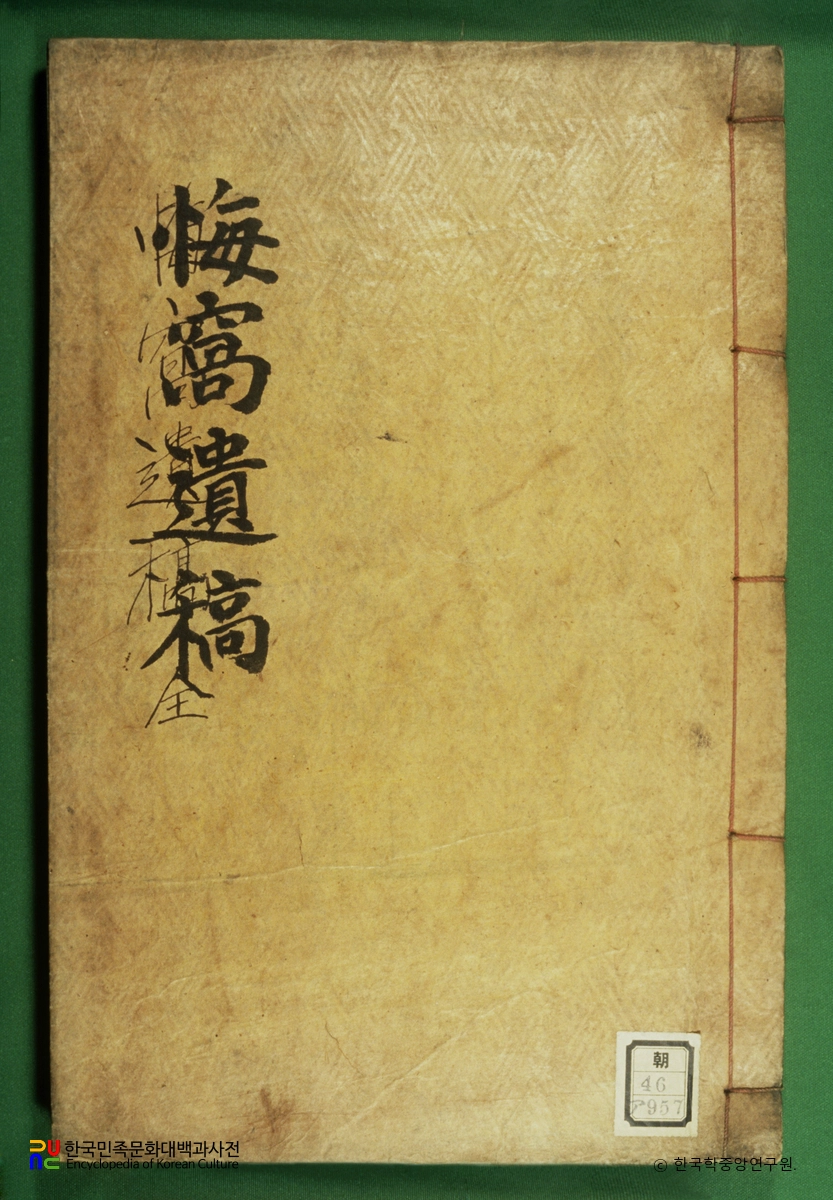 悔窩遺稿
悔窩遺稿全
朝
46
ア957
한국민족문화대백과사전
Encyclopedia of Korean Culture
© 한국학중앙연구원.